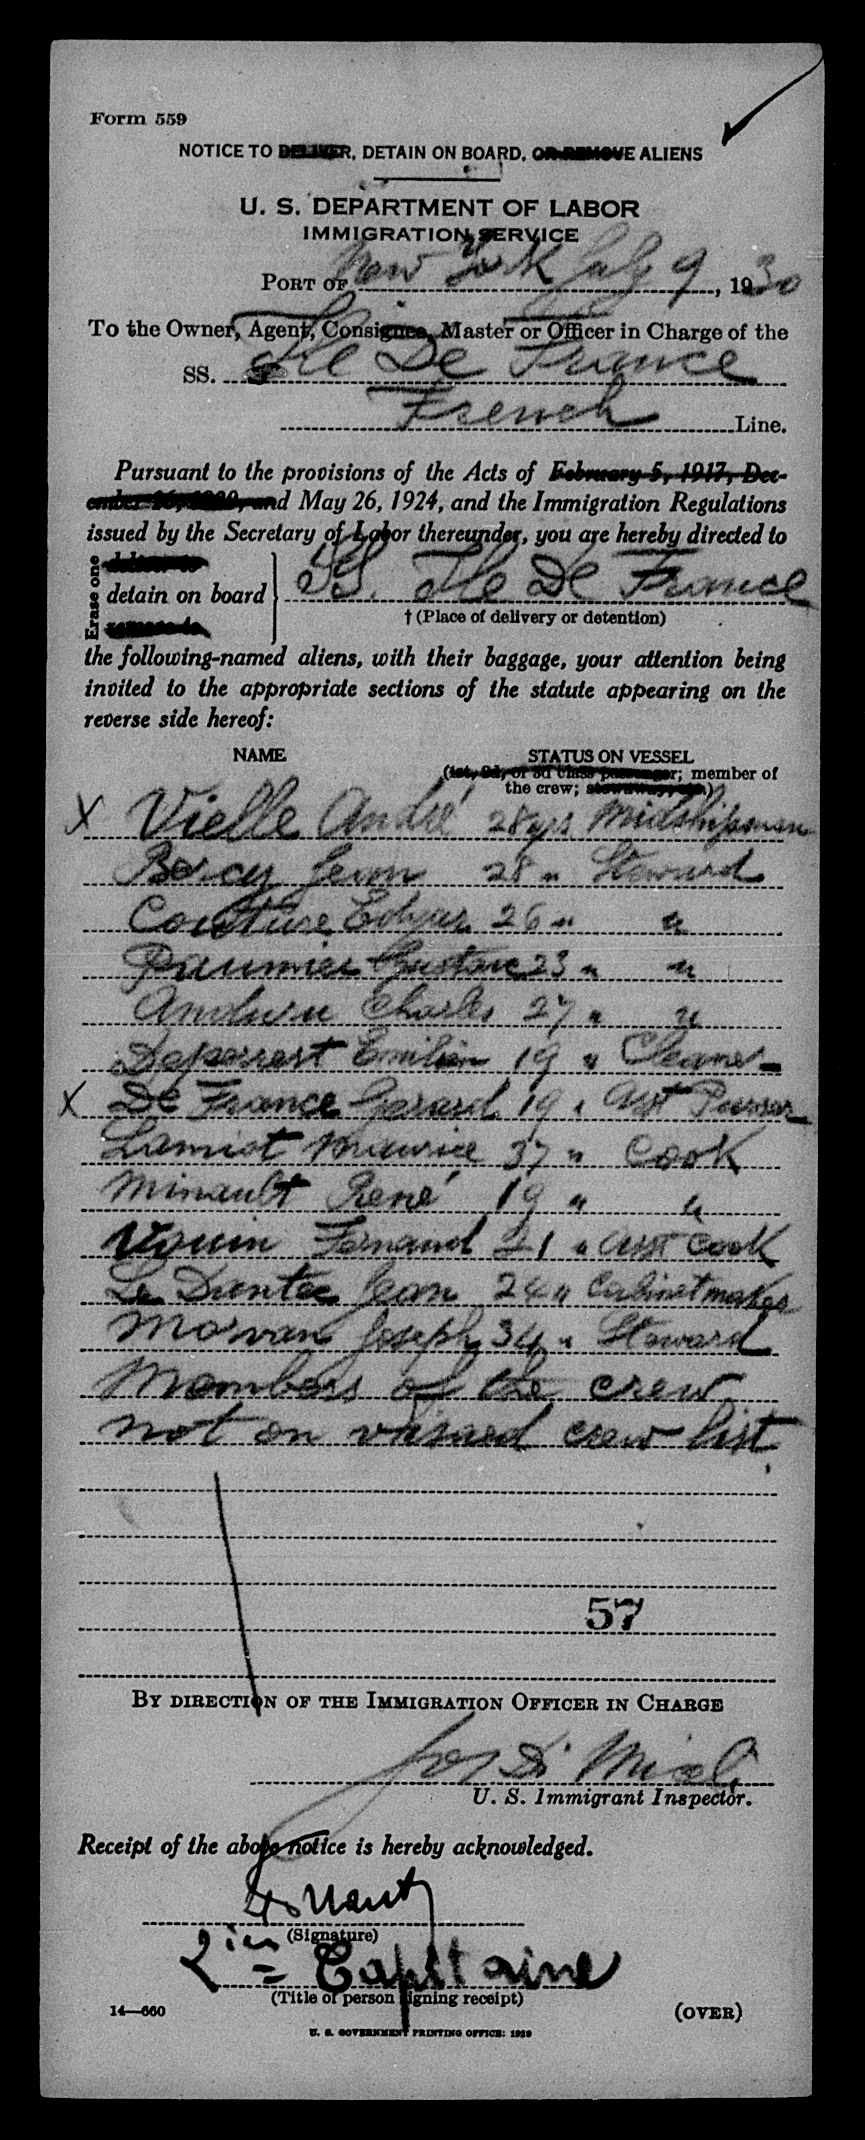 Form 559
NOTICE TO DELIVER, DETAIN ON BOARD, OR REMOVE ALIENS
U. S. DEPARTMENT OF LABOR
IMMIGRATION SERVICE
PORT OF New York July 9, 1930
To the Owner, Agent, Consignee, Master or Officer in Charge of the
SS. Ile De France
French Line.
Pursuant to the provisions of the Acts of February 5, 1917, Dec-
ember 26, 1920, and May 26, 1924, and the Immigration Regulations
issued by the Secretary of Labor thereunder, you are hereby directed to
Erase one
deliver to
detain on board } SS. Ile De France
remove to
† (Place of delivery or detention)
the following-named aliens, with their baggage, your attention being
invited to the appropriate sections of the statute appearing on the
reverse side hereof:
NAME STATUS ON VESSEL
(1st, 2d, or 3d class passenger; member of
the crew; stowaway, etc.)
X Vielle André 28 yrs Midshipman
Jean 28 " Steward
Couture Edgar 26 " "
Paumier Gustave 23 " "
Charles 27 " "
Emilien 19 " Cleaner
X De France Gerard 19 " Asst Purser
Lamiot Maurice 37 " Cook
Minault René 19 " "
Fernand 21 " Asst Cook
Le Dantec Jean 24 " Cabinetmaker
Morvan Joseph 34 " Steward
Members of the crew
not on visaed crew list
57
BY DIRECTION OF THE IMMIGRATION OFFICER IN CHARGE
U. S. Immigrant Inspector.
Receipt of the above notice is hereby acknowledged.
(Signature)
Capitaine
(Title of person signing receipt)
14—660 (OVER)
U. S. GOVERNMENT PRINTING OFFICE: 1929